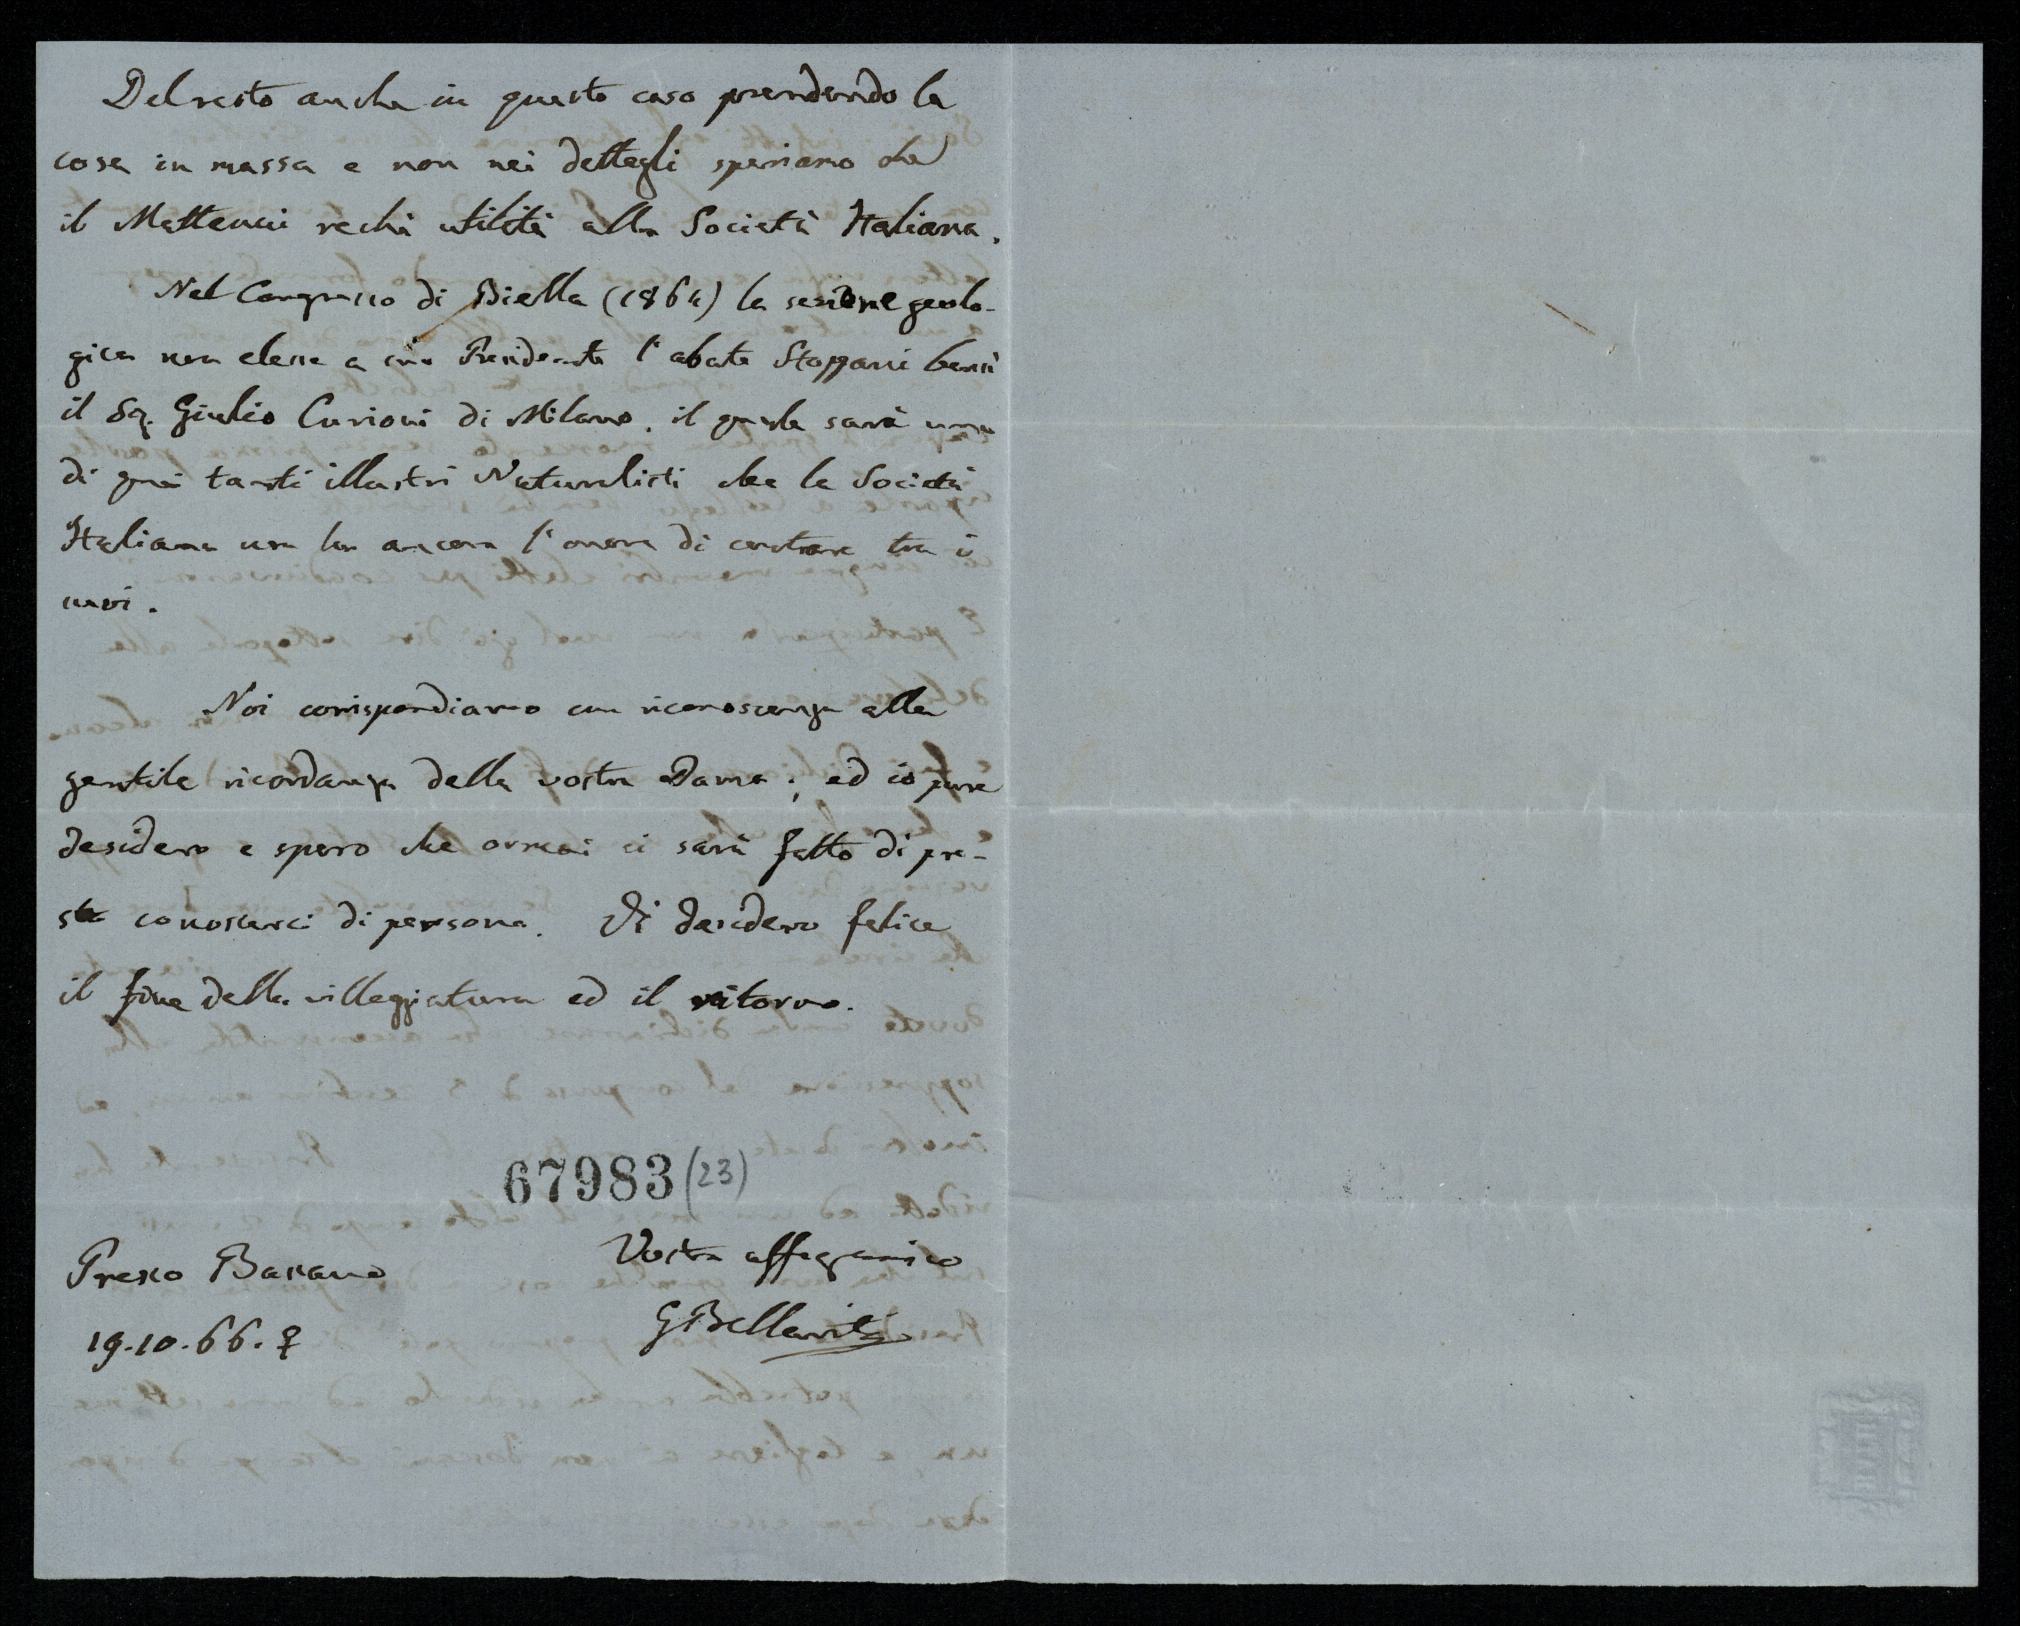 Del resto anche in questo caso prendendo la
cosa in massa e non nei dettagli speriamo che
il Matteucci rechi utilità alla Società Italiana.
Nel Congresso di Biella (1864) la sezione geolo-
gica non elesse a suo Presidente l'abate Stoppani bensì
il Sig. Giulio Curioni di Milano. il quale sarà uno
di quei tanti illustri Naturalisti che la Società
Italiana non ha ancora l'onore di contare tra i
suoi.
Noi corrispondiamo con riconoscenza alla
gentile ricordanza della vostra Dama; ed io pure
desidero e spero che ormai ci sarà fatto di pre-
sto conoscerci di persona. Vi desidero felice
il fine della villeggiatura ed il ritorno.
67983 (23)
Vostro affez amico
Presso Bassano
GBellavitis
19.10.66. ♀